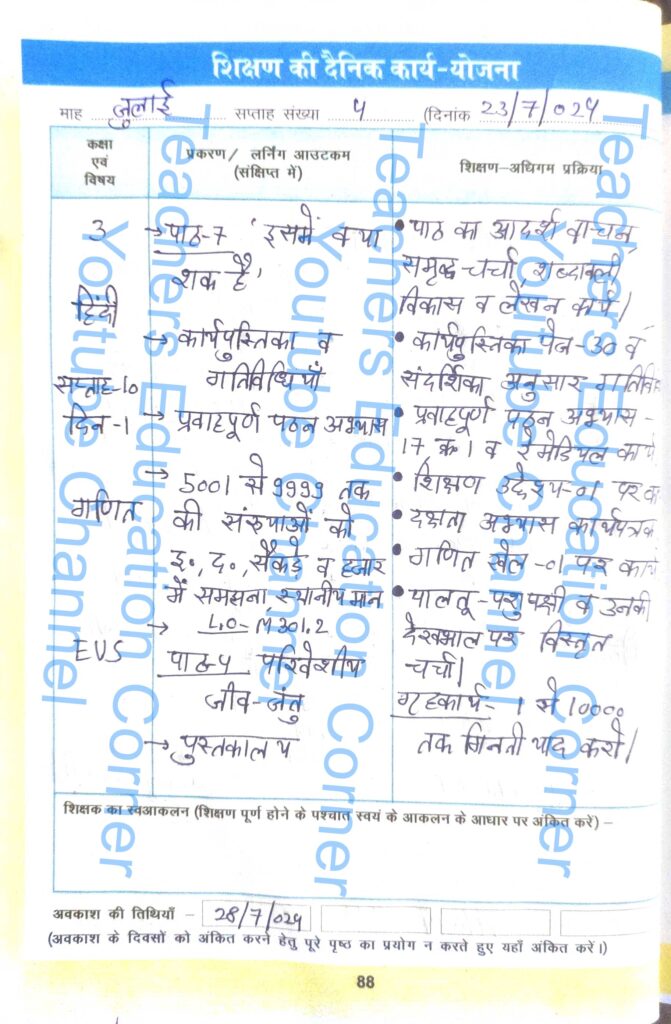 शिक्षण की दैनिक कार्य-योजना
माह जुलाई सप्ताह संख्या 4 (दिनांक 23/7/024
कक्षा एवं विषय
प्रकरण / लर्निंग आउटकम (संक्षिप्त में)
शिक्षण-अधिगम प्रक्रिया
3
हिंदी
सप्ताह-10
दिन-1
→ पाठ-7 'इसमें क्या
शक है'
→ कार्यपुस्तिका व
गतिविधियाँ
→ प्रवाहपूर्ण पठन अभ्यास
• पाठ का आदर्श वाचन,
समृद्ध चर्चा, शब्दावली
विकास व लेखन कार्य।
• कार्यपुस्तिका पेज-30 व
संदर्शिका अनुसार
• प्रवाहपूर्ण पठन अभ्यास-
17 क्र 1 व रेमेडियल कार्य
गणित
→ 5001 से 9999 तक
की संख्याओं को
इ०, द०, सैंकड़े व हजार
में समझना, स्थानीय मान
→ L.O- M301.2
• शिक्षण उद्देश्य-01 पर
• दक्षता अभ्यास कार्यपत्रक
• गणित खेल-01 पर कार्य
EVS
पाठ-4 परिवेशीय
जीव-जंतु
→ पुस्तकालय
• पालतू-पशु पक्षी व उनकी
देखभाल पर विस्तृत
चर्चा।
गृहकार्य- 1 से 10000
तक गिनती याद करो।
शिक्षक का स्वआकलन (शिक्षण पूर्ण होने के पश्चात स्वयं के आकलन के आधार पर अंकित करें) –
अवकाश की तिथियाँ – 28/7/024
(अवकाश के दिवसों को अंकित करने हेतु पूरे पृष्ठ का प्रयोग न करते हुए यहाँ अंकित करें।)
88
Teachers Education Corner
Youtube Channel
Teachers Education Corner
Youtube Channel
Teachers Education Corner
Youtube Channel